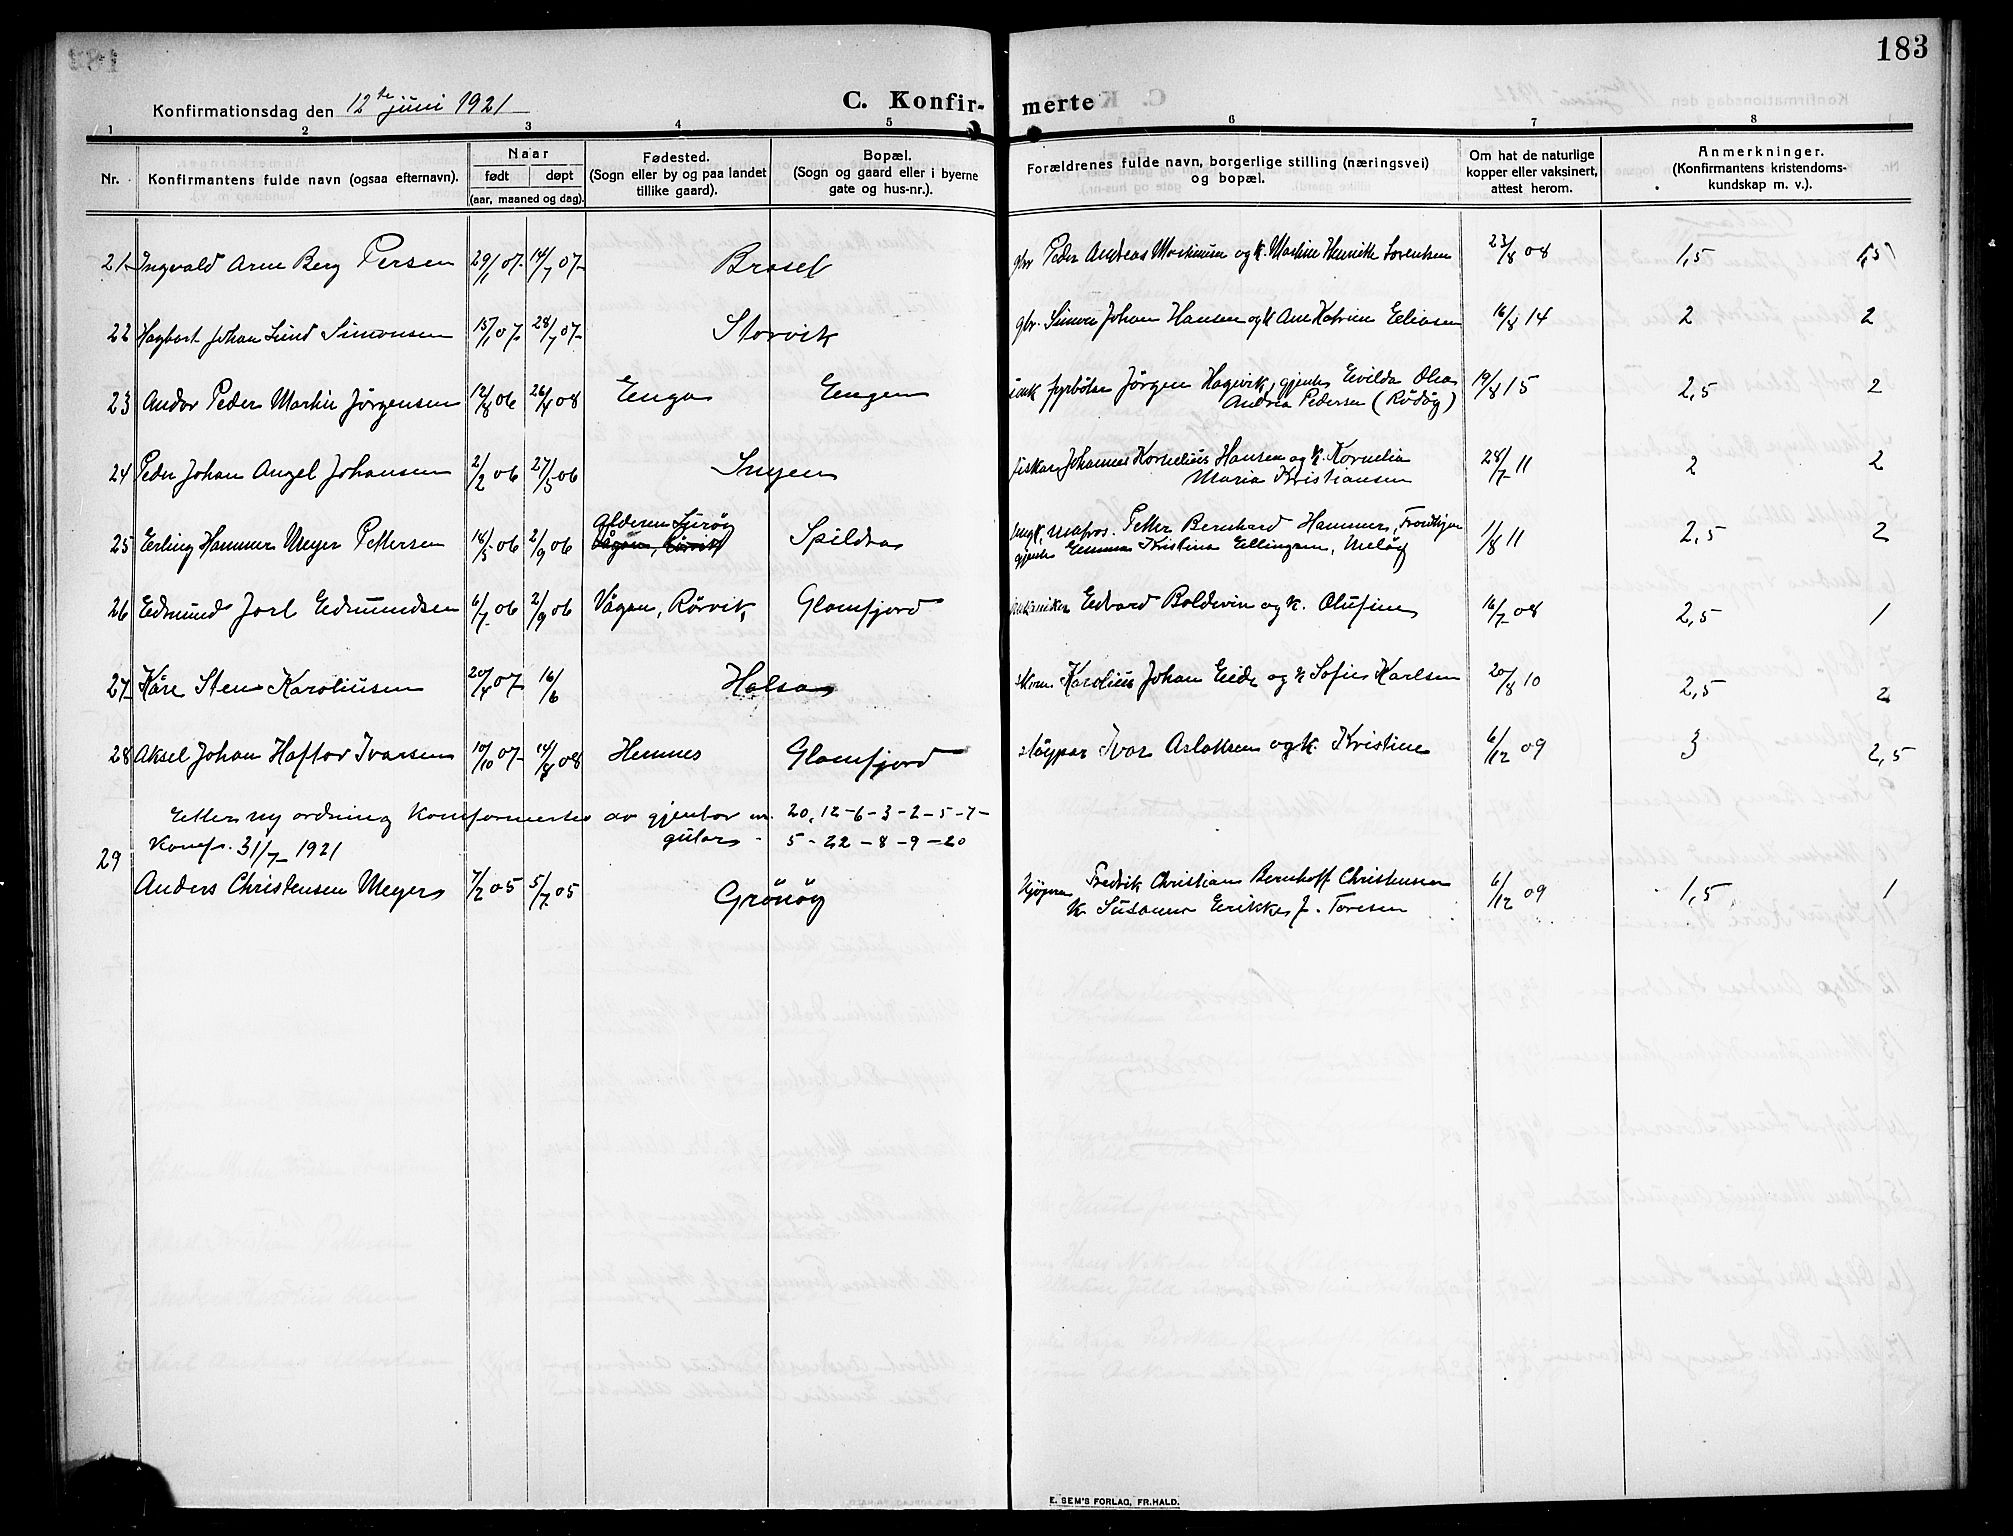 183
Konfirmationsdag den 12te juni 1921
C. Konfir- merte
1 2 3 4 5 6 7 8
Nr.
Konfirmantens fulde navn (ogsaa efternavn).
Naar
født døpt
(aar, maaned og dag).
Fødested.
(Sogn eller by og paa landet
tillike gaard).
Bopæl.
(Sogn og gaard eller i byerne
gate og hus-nr.).
Forældrenes fulde navn, borgerlige stilling (næringsvei)
og bopæl.
Om hat de naturlige
kopper eller vaksinert,
attest herom.
Anmerkninger.
(Konfirmantens kristendoms-
kundskap m. v.).
21 Ingvald Arne Berg Persen 29/1 07 14/7 07 Braset gbr Peder Andreas Mortinsen og k. Martine Henrikke Lorentsen 23/8 08 1,5 1,5
22 Hagbart Johan Lund Simonsen 15/1 07 28/7 07 Storvik gbr. Simon Johan Hansen og k Ane Katrine Eliasen 16/8 14 2 2
23 Andor Peder Martin Jørgensen 12/8 06 26/4 08 Enga Engen fyrbøter Jörgen Hagevik, gjente Evilda Olea
Andrea Pedersen (Rödöy) 19/8 15 2,5 2
24 Peder Johan Angel Johansen 2/2 06 27/5 06 Ingen fisker Johannes Kornelius Hansen og k. Kornelia
Maria Kristiansen 28/7 11 2 2
25 Erling Hammer Meyer Pettersen 18/5 06 2/9 06 Alderen Luröy
Vågan, Rörvik Spildra ungk. matros. Petter Bernhard Hammer, Trondhjem
gjente Emma Kristina Ellingsen, Melöy 1/8 11 2,5 2
26 Edmund Jarl Edmundsen 6/7 06 2/9 06 Vågan, Rörvik, Glomfjord Edvard Baldevin og k. Olufine 16/7 08 2,5 1
27 Kåre Sten Karoliusen 20/4 07 16/6 Halsa skom. Karolius Johan Eide og k Sofie Karlsen 20/8 10 2,5 2
28 Aksel Johan Haftor Ivarsen 10/10 07 14/8 08 Hemnes Glomfjord Ivar Aslaksen og k. Kristine 6/12 09 3 2,5
Efter ny ordning konfirmertes av gjentor nr. 20, 12-6-3-2-5-7-
Konf. 31/7 1921 gutar - 5-22-8-9-20
29 Anders Christensen Meyer 7/2 05 5/7 05 Grönöy kjöpm Fredrik Christian Bernhoff Christensen
k Susanna Erikke J. Toresen 6/12 09 1,5 1
E. SEM'S FORLAG, FR.HALD.